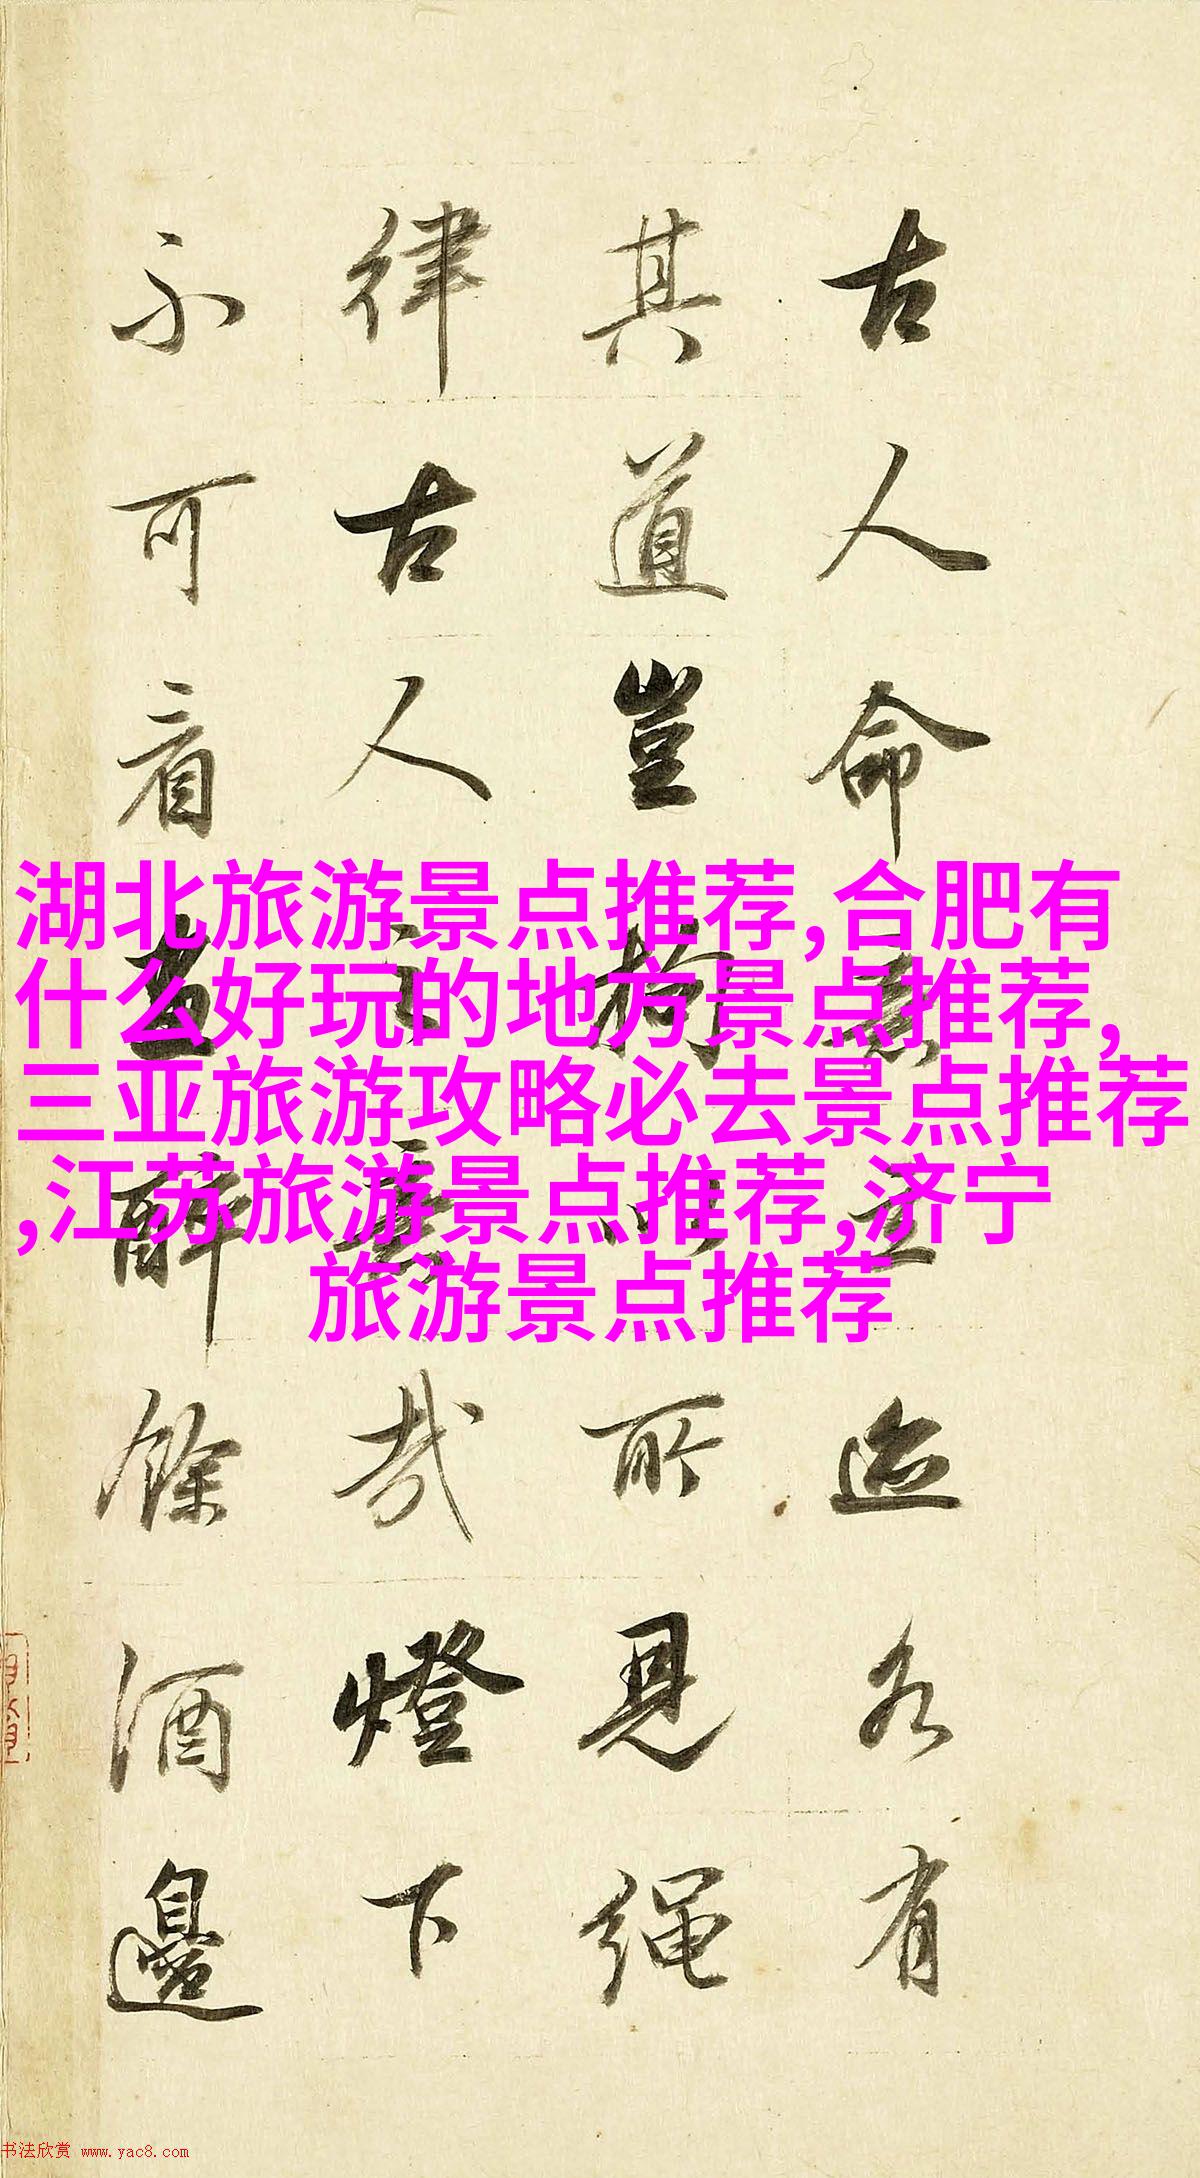 古人命意立迹各有
其道豈拘以所見繩
律古人之意哉燈下
不可看畫醉餘酒邊
湖北旅游景点推荐,合肥有
什么好玩的地方景点推荐,
三亚旅游攻略必去景点推荐
,江苏旅游景点推荐,济宁
旅游景点推荐
书法欣赏 www.yac8.com